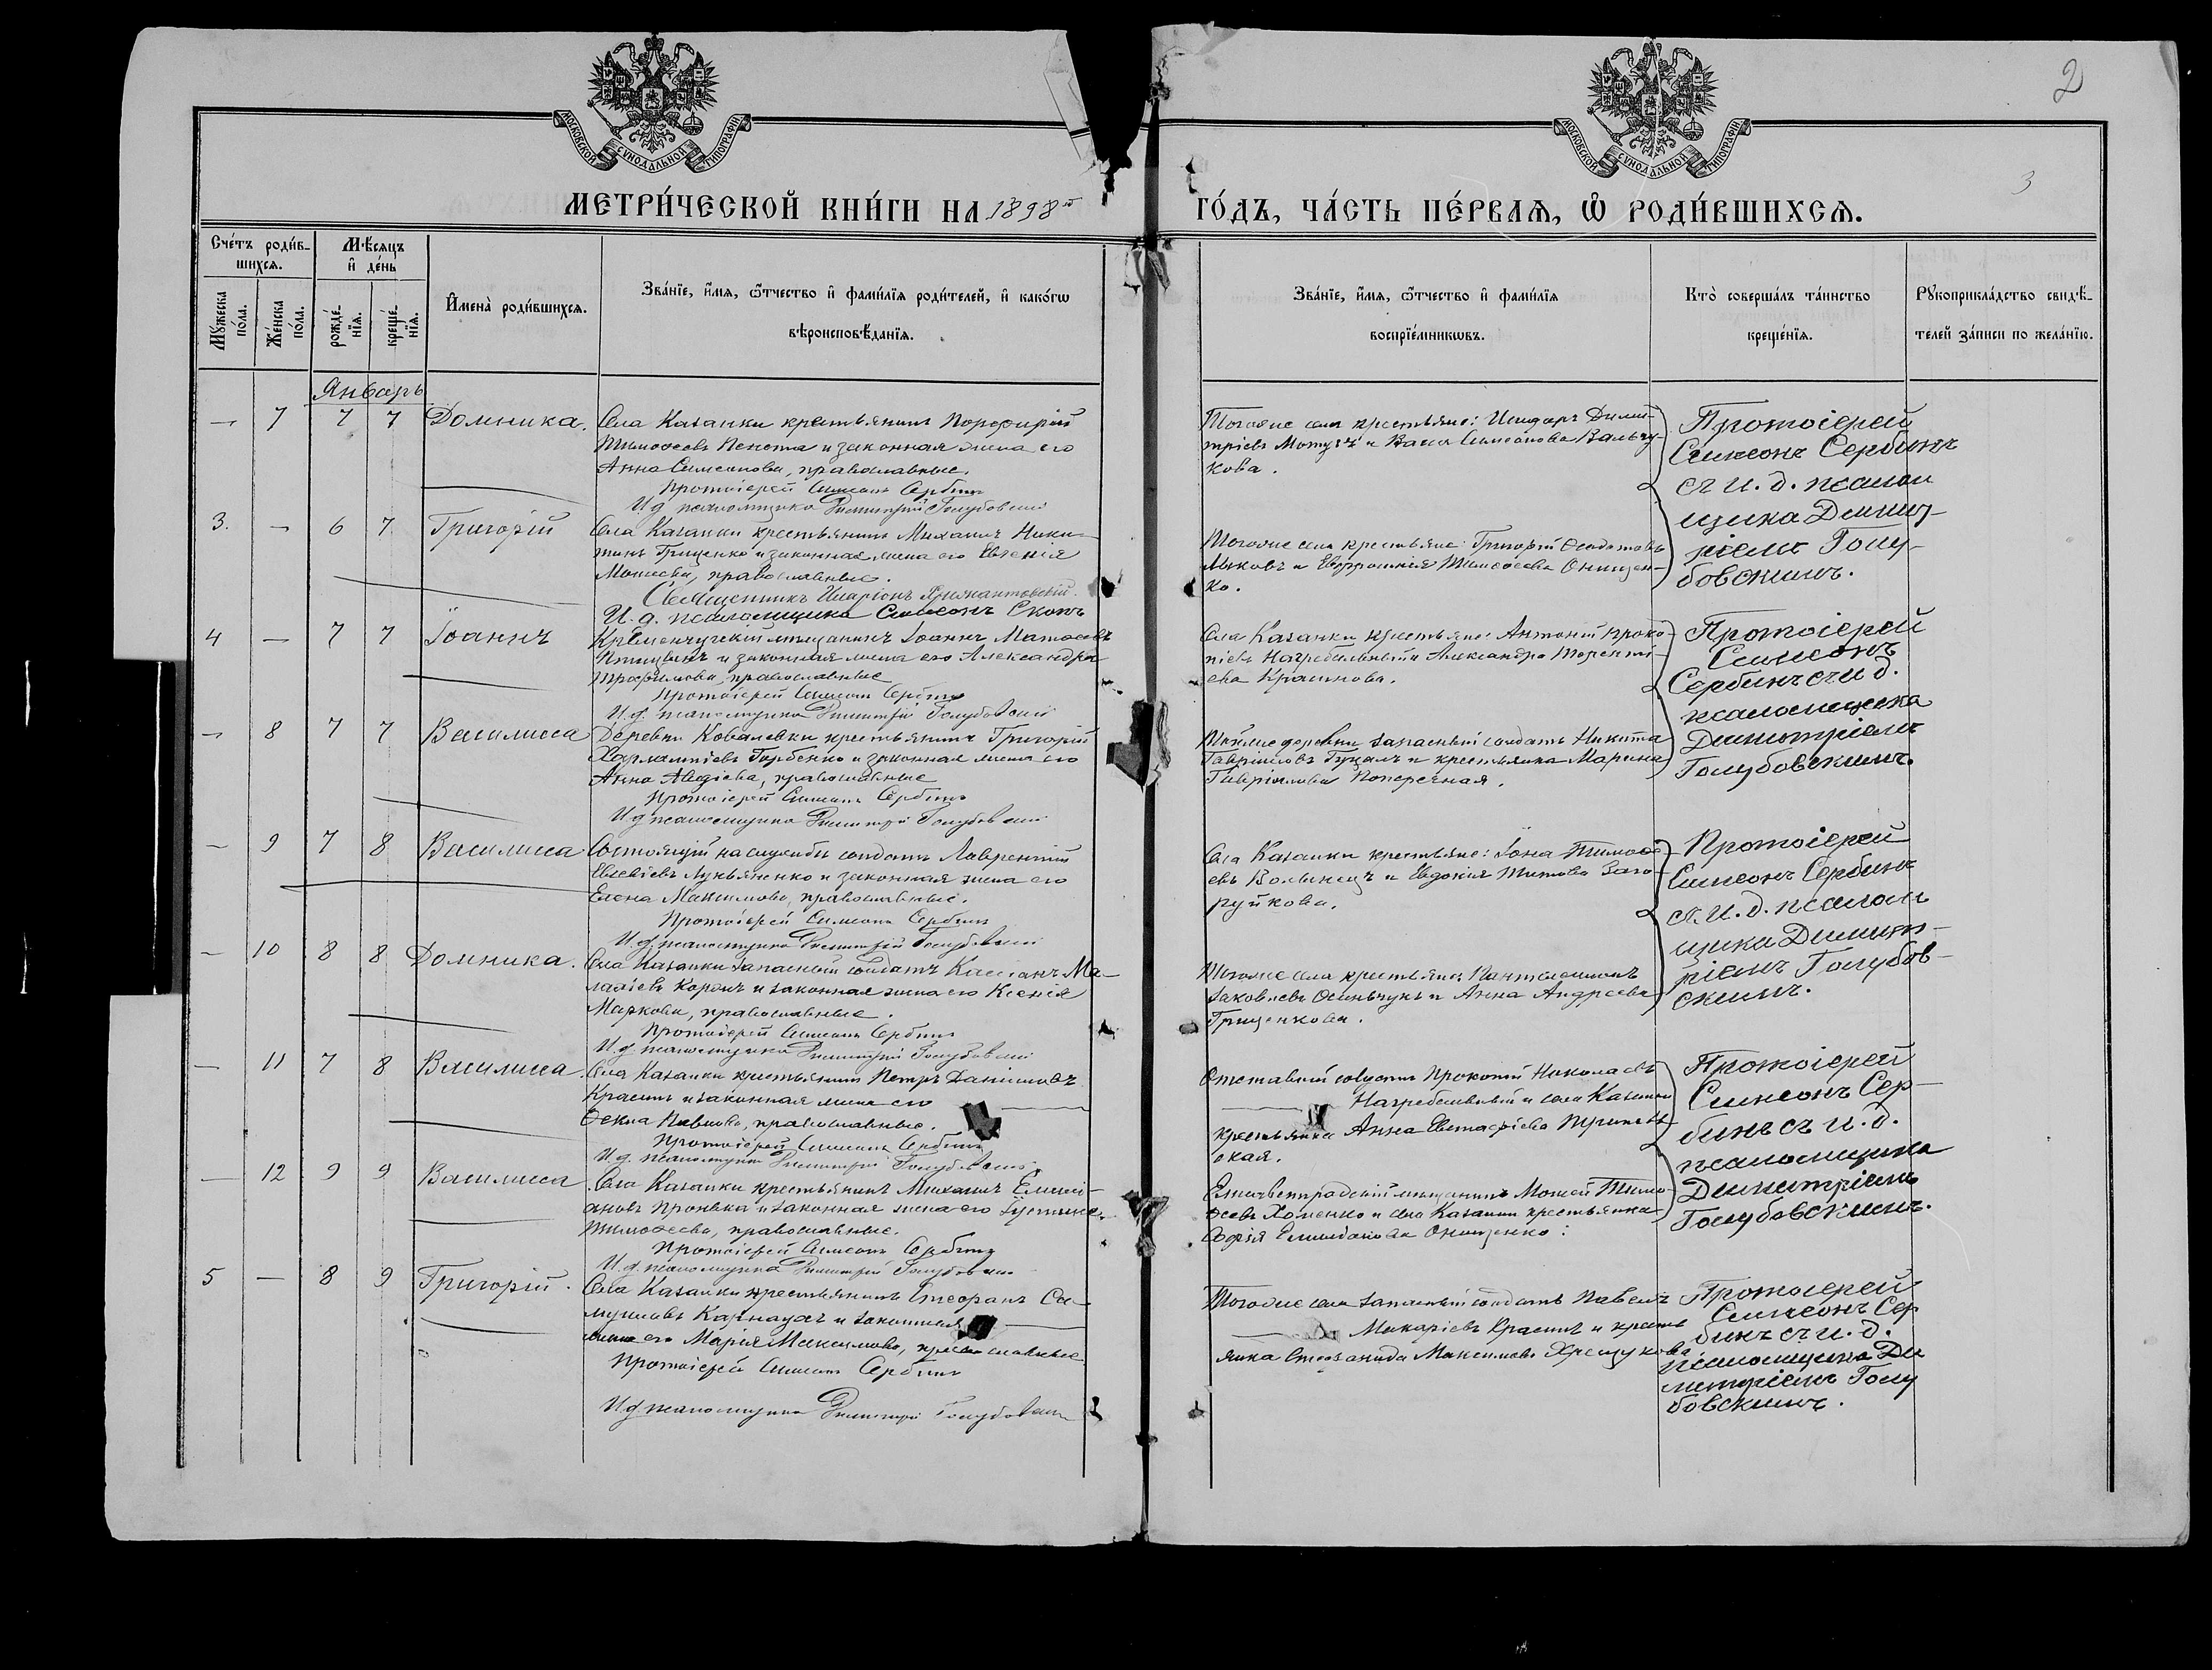 2
3
МОСКОВСКОЙ СѴНОДАЛЬНОЙ ТИПОГРАФІИ
МОСКОВСКОЙ СѴНОДАЛЬНОЙ ТИПОГРАФІИ
МЕТРИ́ЧЕСКОЙ КНИ́ГИ НА 1898й
ГО́ДЪ, ЧА́СТЬ ПЕ́РВАѦ, Ѡ҆ РОДИ́ВШИХСѦ.
Сче́тъ роди́в-
шихсѧ.
Мѣ́сяцъ
и҆ де́нь
Мꙋ́жеска
по́ла.
Же́нска
по́ла.
рожде́-
нїѧ.
креще́-
нїѧ.
И҆мена̀ роди́вшихсѧ.
Зва́нїе, и҆́мѧ, ѻ҆́тчество и҆ фами́лїѧ роди́телей, и҆ како́гѡ
вѣроисповѣ́данїѧ.
Зва́нїе, и҆́мѧ, ѻ҆́тчество и҆ фами́лїѧ
воспрїе́мникѡвъ.
Кто̀ соверша́лъ та́инство
креще́нїѧ.
Рꙋкоприкла́дство свидѣ́-
телей за́писи по жела́нїю.
Январь
— 7 7 7 Домника.
Села Казанки крестьянинъ Порфирій
Тимофеевъ Пекота и законная жена его
Анна Симеонова, православные.
Протоіерей Симеонъ Сербинъ
И д псаломщика Димитрій Голубовскій
Тогоже села крестьяне: Исидоръ Дими-
тріевъ Мотузъ и Васса Симеонова Вальчу-
кова.
Протоіерей
Симеонъ Сербинъ
съ и. д. псалом
щика Димит-
ріемъ Голу-
бовскимъ.
3. — 6 7 Григорій
Села Казанки крестьянинъ Михаилъ Ники-
тинъ Гриценко и законная жена его Евгенія
Моисеева, православные.
Священникъ Иларіонъ
И. д. псаломщика Симеонъ Скокъ
Тогоже села крестьяне: Григорій Феодотовъ
и Евфросинія Тимофеева Онищен-
ко.
4 — 7 7 Іоаннъ
Кременчугскій мѣщанинъ Іоаннъ Матфеевъ
Птицынъ и законная жена его Александра
Трофимова, православные
Протоіерей Симеонъ Сербинъ
И. д. псаломщика Димитрій Голубовскій
Села Казанки крестьяне: Антоній Проко-
піевъ Нагребельный и Александра Терентi-
ева Краснова.
Протоіерей
Симеонъ
Сербинъ съ и д.
псаломщика
Димитріемъ
Голубовскимъ.
— 8 7 7 Василисса
Деревни Ковалевки крестьянинъ Григорій
Харлампіевъ Горбенко и законная жена его
Анна Авдіева, православные
Протоіерей Симеонъ Сербинъ
И д псаломщика Димитрій Голубовскій
Тойже деревни запасный солдатъ Никита
Гавріиловъ и крестьянка Марина
Гавріилова Поперечная.
— 9 7 8 Василисса
Состоящій на службѣ солдатъ Лаврентій
Евсевіевъ Лукьяненко и законная жена его
Елена Максимова, православные.
Протоіерей Симеонъ Сербинъ
И. д. псаломщика Димитрій Голубовскій
Села Казанки крестьяне: Іона Тимофе-
евъ Волынецъ и Евдокія Титова Заго-
руйкова.
Протоіерей
Симеонъ Сербинъ
съ И. д. псалом
щика Димит-
ріемъ Голубов-
скимъ.
— 10 8 8 Домника.
Села Казанки запасный солдатъ Кассіанъ Ма-
лахіевъ и законная жена его Ксенія
Маркова, православные.
Протоіерей Симеонъ Сербинъ
И д псаломщика Димитрій Голубовскій
Тогоже села крестьяне Пантелеимонъ
Іаковлевъ Осипчукъ и Анна Андреева
Гриценкова.
— 11 7 8 Василисса
Села Казанки крестьянинъ Петръ Даніиловъ
Красинъ и законная жена его
Фекла Павлова, православные.
Протоіерей Симеонъ Сербинъ
И д. псаломщика Димитрій Голубовскій
Отставной солдатъ Прокопій Николаевъ
Нагребельный и села Казанки
крестьянка Анна Евстафіева
ская.
Протоіерей
Симеонъ Сер-
бинъ съ и. д.
псаломщика
Димитріемъ
Голубовскимъ.
— 12 9 9 Василисса
Села Казанки крестьянинъ Михаилъ Емилі-
ановъ Пронька и законная жена его Іустина
Тимофеева, православные.
Протоіерей Симеонъ Сербинъ
И. д. псаломщика Димитрій Голубовскій
Елисаветградскій мѣщанинъ Моисей Тимо-
феевъ Хоменко и села Казанки крестьянка
Софія Онищенко.
5 — 8 9 Григорій.
Села Казанки крестьянинъ Стефанъ Са-
муиловъ Карнаухъ и законная
жена его Марія Максимова, православные
Протоіерей Симеонъ Сербинъ
И д псаломщика Димитрій Голубовскій
Тогоже села запасный солдатъ Павелъ
Макаріевъ Красинъ и кресть
янка Стефанида Максимова
Протоіерей
Симеонъ Сер
бинъ съ и. д.
псаломщика Ди
митріемъ Голу
бовскимъ.